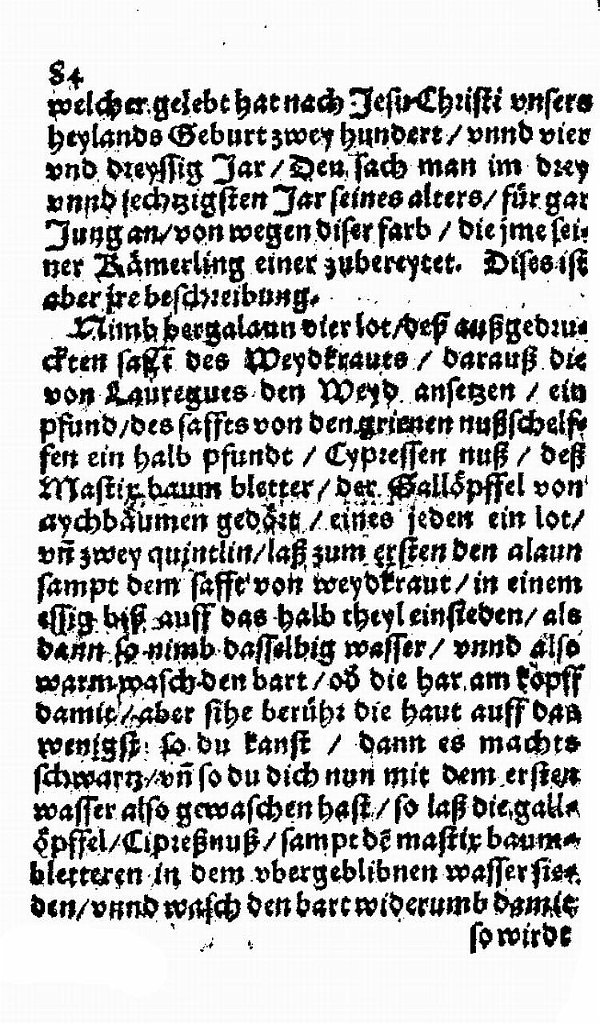 84
welcher gelebt hat nach Jesu Christi vnsers
heylands Geburt zwey hundert / vnnd vier
vnd dreyssig Jar / Den sach man im drey
vnnd sechtzigsten Jar seines alters / für gar
Jung an / von wegen diser farb / die jme sei-
ner Kämerling einer zubereytet. Dises ist
aber jre beschreibung.
Nimb bergalaun vier lot / deß außgedru-
ckten safft des Weydkrauts / darauß die
von Lauregues den Weyd ansetzen / ein
pfund / des saffts von den grienen nußschelf-
fen ein halb pfundt / Cypressen nuß / deß
Mastix baum bletter / der Gallöpffel von
aychbäumen gedört / eines jeden ein lot /
vñ zwey quintlin / laß zum ersten den alaun
sampt dem safft von weydkraut / in einem
essig biß auff das halb theyl einsieden / als
dann so nimb dasselbig wasser / vnnd also
warm wasch den bart / oď die har am köpff
damit / aber sihe berühr die haut auff das
wenigst so du kanst / dann es machts
schwartz / vñ so du dich nun mit dem ersten
wasser also gewaschen hast / so laß die gall-
öpffel / Cipreßnuß / sampt dē mastix baum-
bletteren in dem vbergeblibnen wasser sie-
den / vnnd wasch den bart widerumb damit
so wirdt